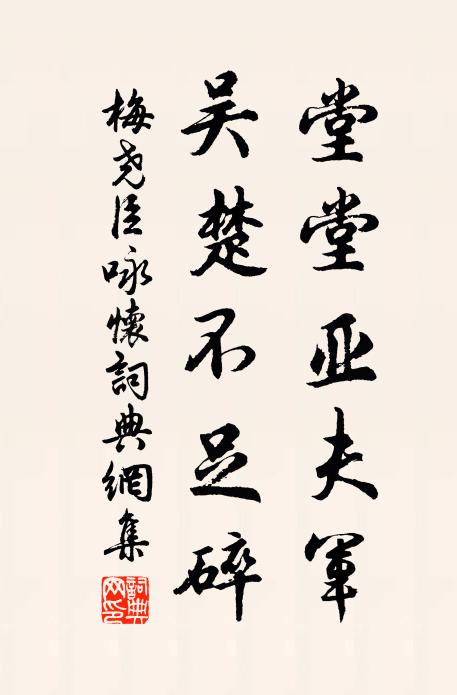 堂堂亚夫軍
吴楚不足碎
梅堯臣咏懷詞典網集
詞典网印